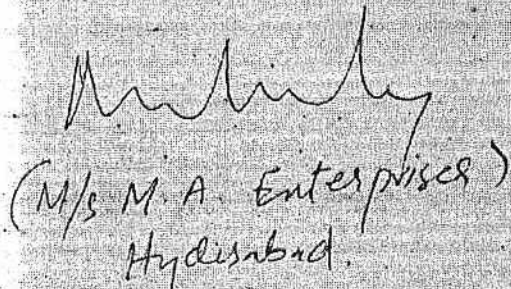 (M/s M. A. Enterprises)
Hyderabad.